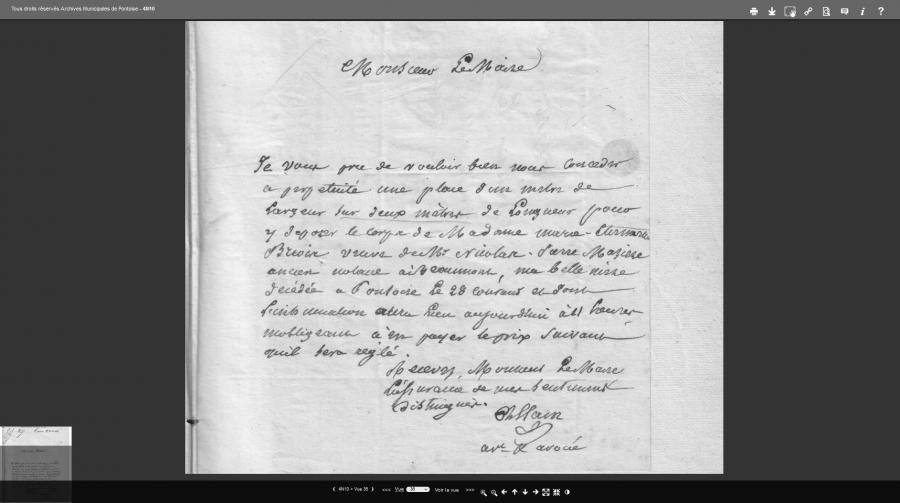 Tous droits réservés Archives Municipales de Pontoise - 4N10
Monsieur Le Maire
Je vous prie de vouloir bien nous Conceder
a perpetuité une place d'un metre de
Largeur sur deux mètres de Longueur pour
y deposer le corps de Madame marie-
veuve de Mr Nicolas-Pierre
ancien notaire a Beaumont, ma belle
décédée a Pontoise Le 28 courant et dont
L'inhumation aura lieu aujourdhui à 11 heures
mobligeant à en payer le prix Suivant
quil sera reglé.
Recevez, Monsieur Le Maire
L'assurance de mes Sentiments
Distingués.
avoué
4N10 > Vue 35
<<< Vue
Voir la vue >>>